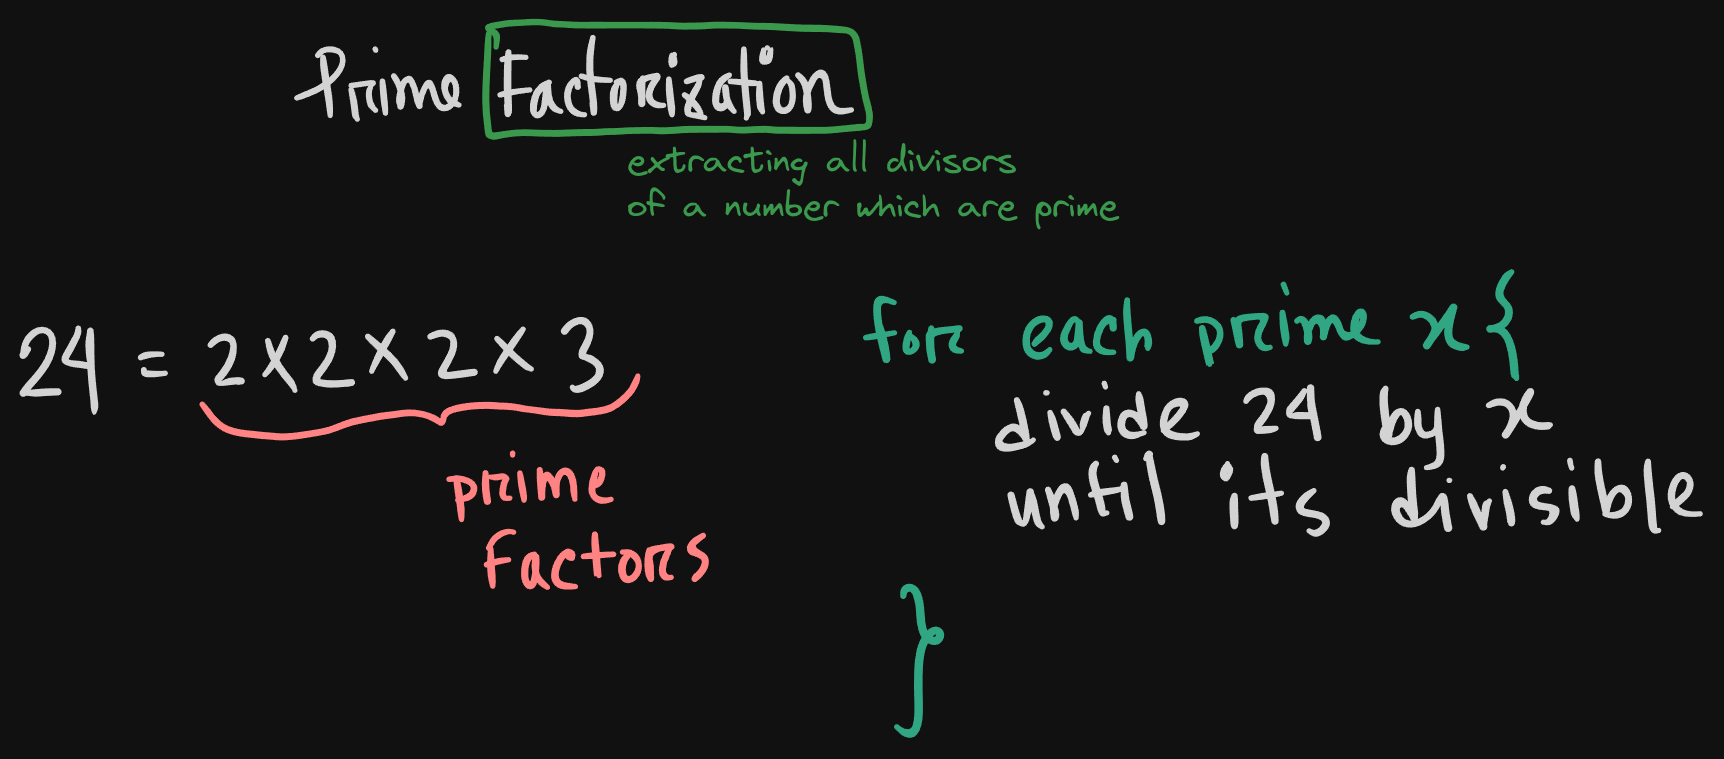 Prime Factorization
extracting all divisors
of a number which are prime
24 = 2 × 2 × 2 × 3
prime
factors
for each prime x {
divide 24 by x
until its divisible
}